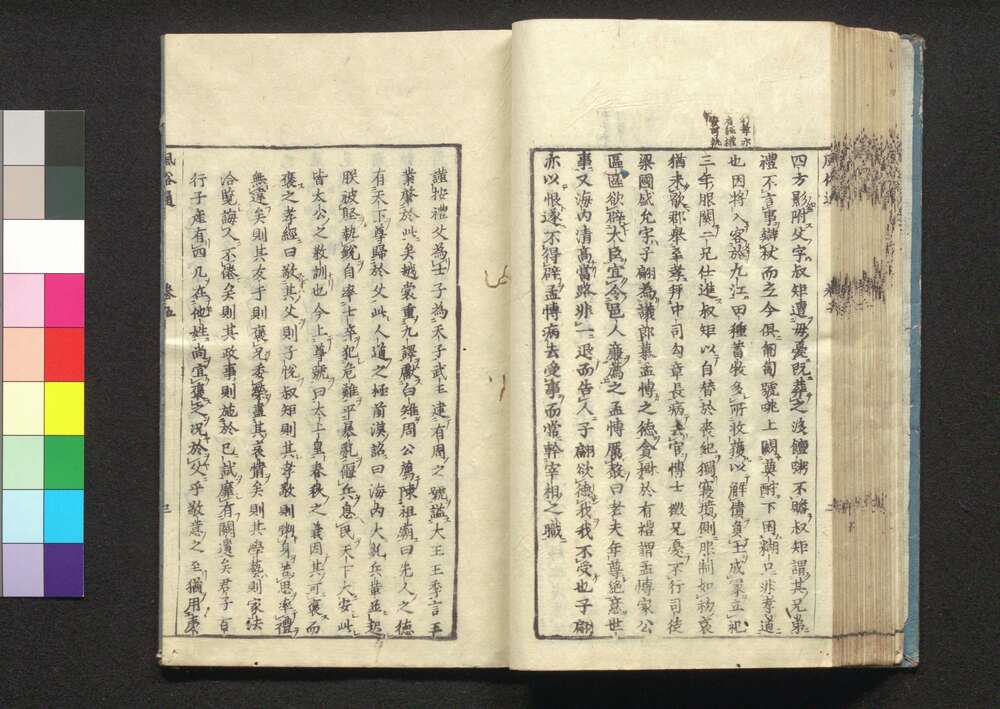 四方影附父字叔矩遭母憂既葬之後饘粥不贍叔矩謂其兄弟
禮不言事辯杖而之今俱匍匐號咷上闕奠酹下困糊口非孝道
也因將入客於九江田種蓄牧多所收穫以解債負土成冢立祀
三年服闋二兄仕進叔矩以自替於喪紀獨寢墳側服制如初哀
猶未歇郡舉至孝拜中司勾章長病去官博士徵兄憂不行司徒
梁國盛允字子翩為議郎慕孟博之德貪樹於有禮謂孟博家公
區區欲辟大臣宜令邑人廉薦之孟博厲聲曰老夫年尊絶意世
事又海內清高當路非一退而告人子翩欲德我我不受也子翩
亦以恨遂不得辟孟博病去受事而當幹宰相之職
風俗通 卷五 二
謹按禮父為士子為天子武王建有周之號謚大王王季言王
業肇於此矣越裳重九譯獻白雉周公薦陳祖廟曰先人之德
有天下尊歸於父此人道之極前漢詔曰海內大亂兵革並起
朕被堅執銳自率士卒犯危難平暴亂偃兵息民天下大安此
皆太公之教訓也今上尊號曰太上皇春秋之義因其可褒而
褒之孝經曰敬其父則子悅叔矩則其孝敬則粥身苦思率禮
無違矣則其友于則褒兄委榮盡其哀情矣則其學藝則家法
洽覽誨人不倦矣則其政事則施於已試靡有闕遺矣君子百
行子產有四凡在他姓尚宜褒之況於父乎敬慕之至猶用
風俗通 卷五 三